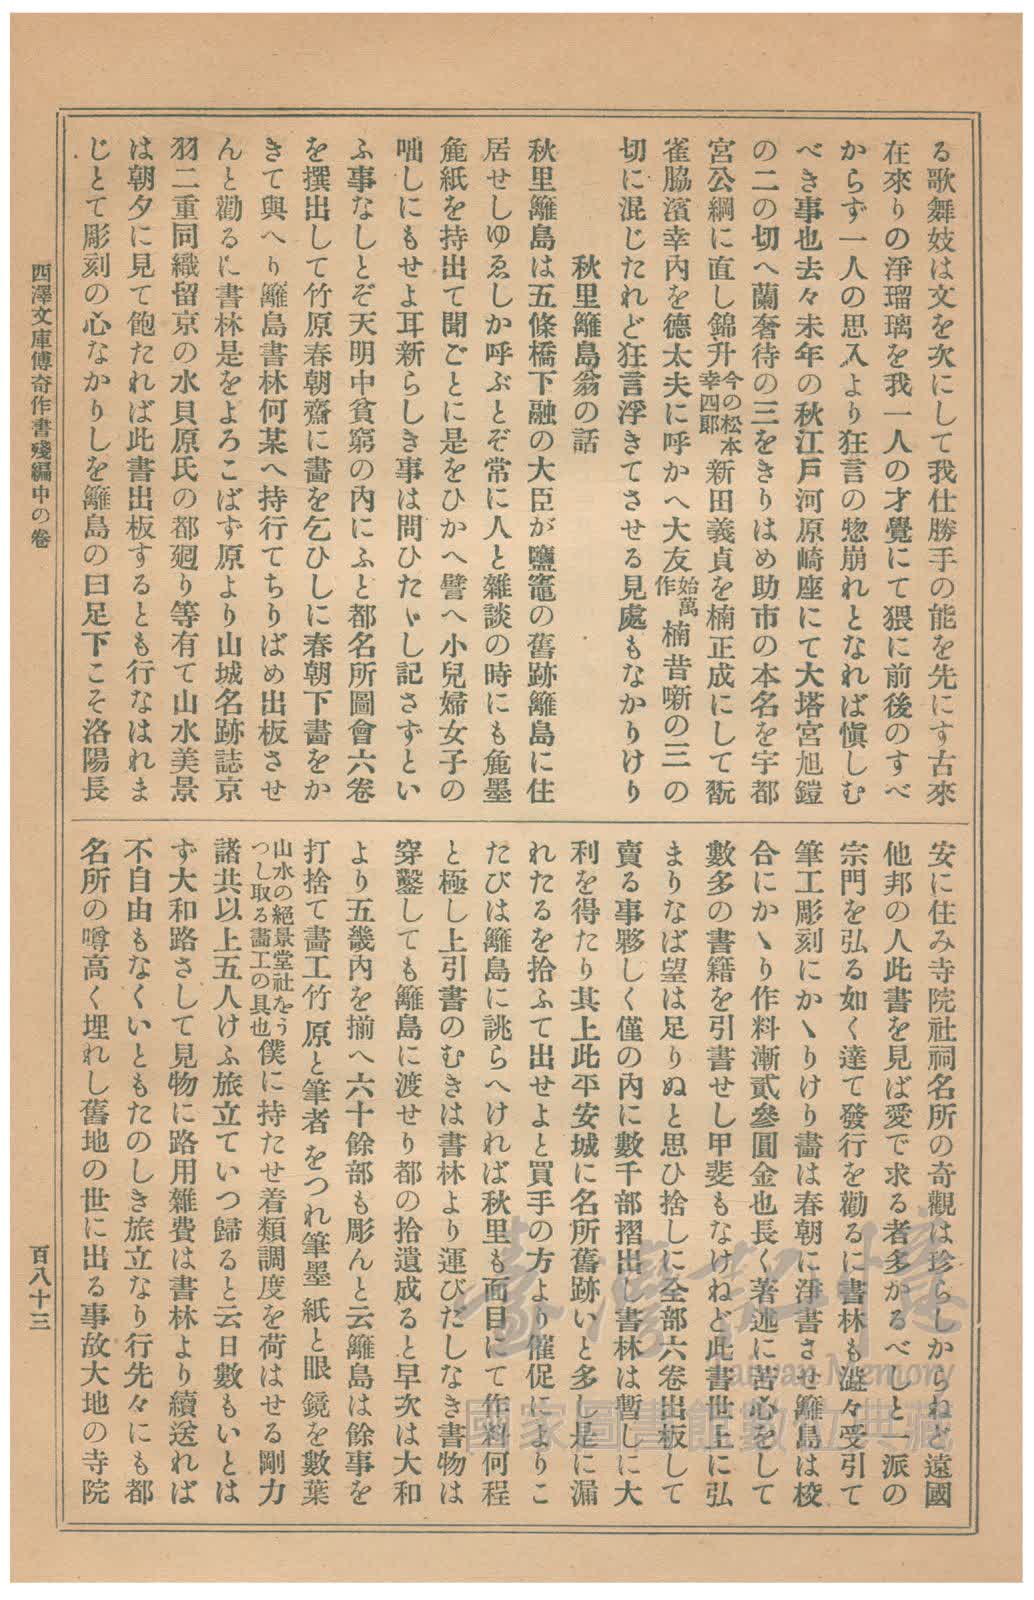 る歌舞妓は文を次にして我仕勝手の能を先にす古來
在來りの淨瑠璃を我一人の才覺にて猥に前後のすべ
からず一人の思入より狂言の惣崩れとなれば愼しむ
べき事也去々未年の秋江戸河原崎座にて大塔宮旭鎧
の二の切へ蘭奢待の三をきりはめ助市の本名を宇都
宮公綱に直し錦升今の松本幸四郎新田義貞を楠正成にして翫
雀脇濱幸內を德太夫に呼かへ大友始萬作楠昔噺の三の
切に混じたれど狂言浮きてさせる見處もなかりけり
秋里籬島翁の話
秋里籬島は五條橋下融の大臣が鹽竈の舊跡籬島に住
居せしゆゑしか呼ぶとぞ常に人と雜談の時にも麁墨
麁紙を持出て聞ごとに是をひかへ譬へ小兒婦女子の
咄しにもせよ耳新らしき事は問ひたゞし記さずとい
ふ事なしとぞ天明中貧窮の內にふと都名所圖會六卷
を撰出して竹原春朝齋に畵を乞ひしに春朝下畵をか
きて與へり籬島書林何某へ持行てちりばめ出板させ
んと勸るに書林是をよろこばず原より山城名跡誌京
羽二重同織留京の水貝原氏の都廻り等有て山水美景
は朝夕に見て飽たれば此書出板するとも行なはれま
じとて彫刻の心なかりしを籬島の曰足下こそ洛陽長
安に住み寺院社祠名所の奇觀は珍らしからねど遠國
他邦の人此書を見ば愛で求る者多かるべしと一派の
宗門を弘る如く達て發行を勸るに書林も澁々受引て
筆工彫刻にかゝりけり畵は春朝に淨書させ籬島は校
合にかゝり作料漸貳參圓金也長く著述に苦心をして
數多の書籍を引書せし甲斐もなけねど此書世上に弘
まりなば望は足りぬと思ひ捨しに全部六卷出板して
賣る事夥しく僅の內に數千部摺出し書林は暫しに大
利を得たり其上此平安城に名所舊跡いと多し是に漏
れたるを拾ふて出せよと買手の方より催促によりこ
たびは籬島に誂らへければ秋里も面目にて作料何程
と極し上引書のむきは書林より運びだしなき書物は
穿鑿しても籬島に渡せり都の拾遺成ると早次は大和
より五畿內を揃へ六十餘部も彫んと云籬島は餘事を
打捨て畵工竹原と筆者をつれ筆墨紙と眼鏡を數葉
山水の絕景堂社をうつし取る畵工の具也僕に持たせ着類調度を荷はせる剛力
諸共以上五人けふ旅立ていつ歸ると云日數もいとは
ず大和路さして見物に路用雜費は書林より續送れば
不自由もなくいともたのしき旅立なり行先々にも都
名所の噂高く埋れし舊地の世に出る事故大地の寺院
西澤文庫傳奇作書殘編中の卷
百八十三
臺灣記憶
Taiwan Memory
國家圖書館數位典藏